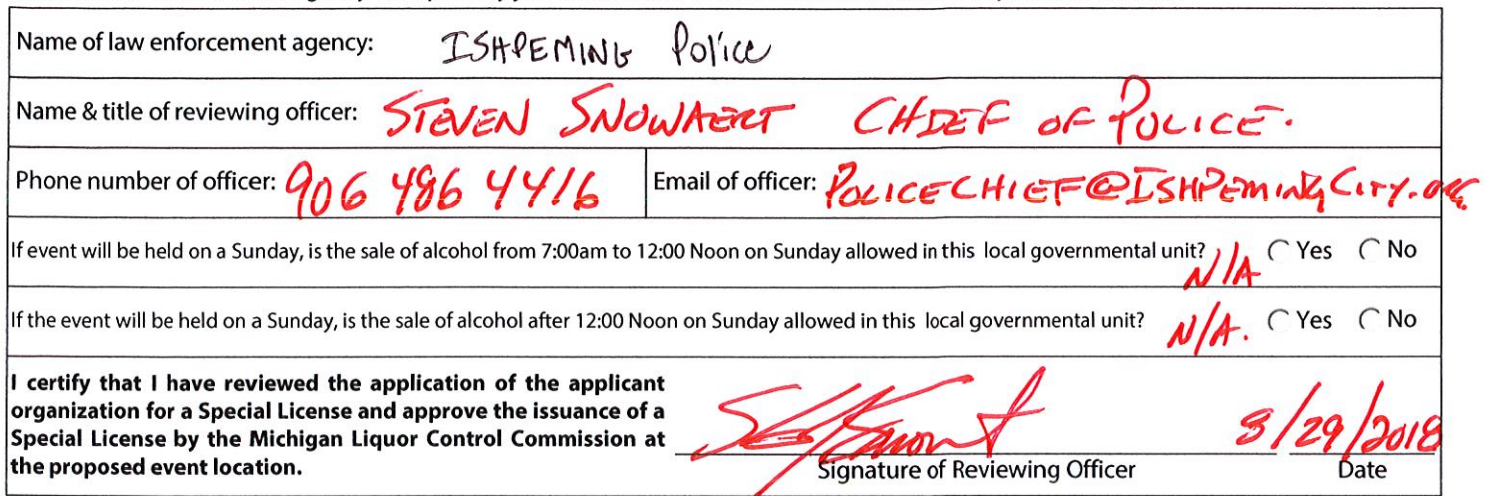 Name of law enforcement agency: ISHPEMING Police
Name & title of reviewing officer: STEVEN SNOWAERT CHIEF OF POLICE.
Phone number of officer: 906 486 4416 Email of officer: POLICECHIEF@ISHPEMINGCITY.ORG
If event will be held on a Sunday, is the sale of alcohol from 7:00am to 12:00 Noon on Sunday allowed in this local governmental unit? N/A Yes No
If the event will be held on a Sunday, is the sale of alcohol after 12:00 Noon on Sunday allowed in this local governmental unit? N/A. Yes No
I certify that I have reviewed the application of the applicant
organization for a Special License and approve the issuance of a
Special License by the Michigan Liquor Control Commission at
the proposed event location.
8/29/2018
Signature of Reviewing Officer Date